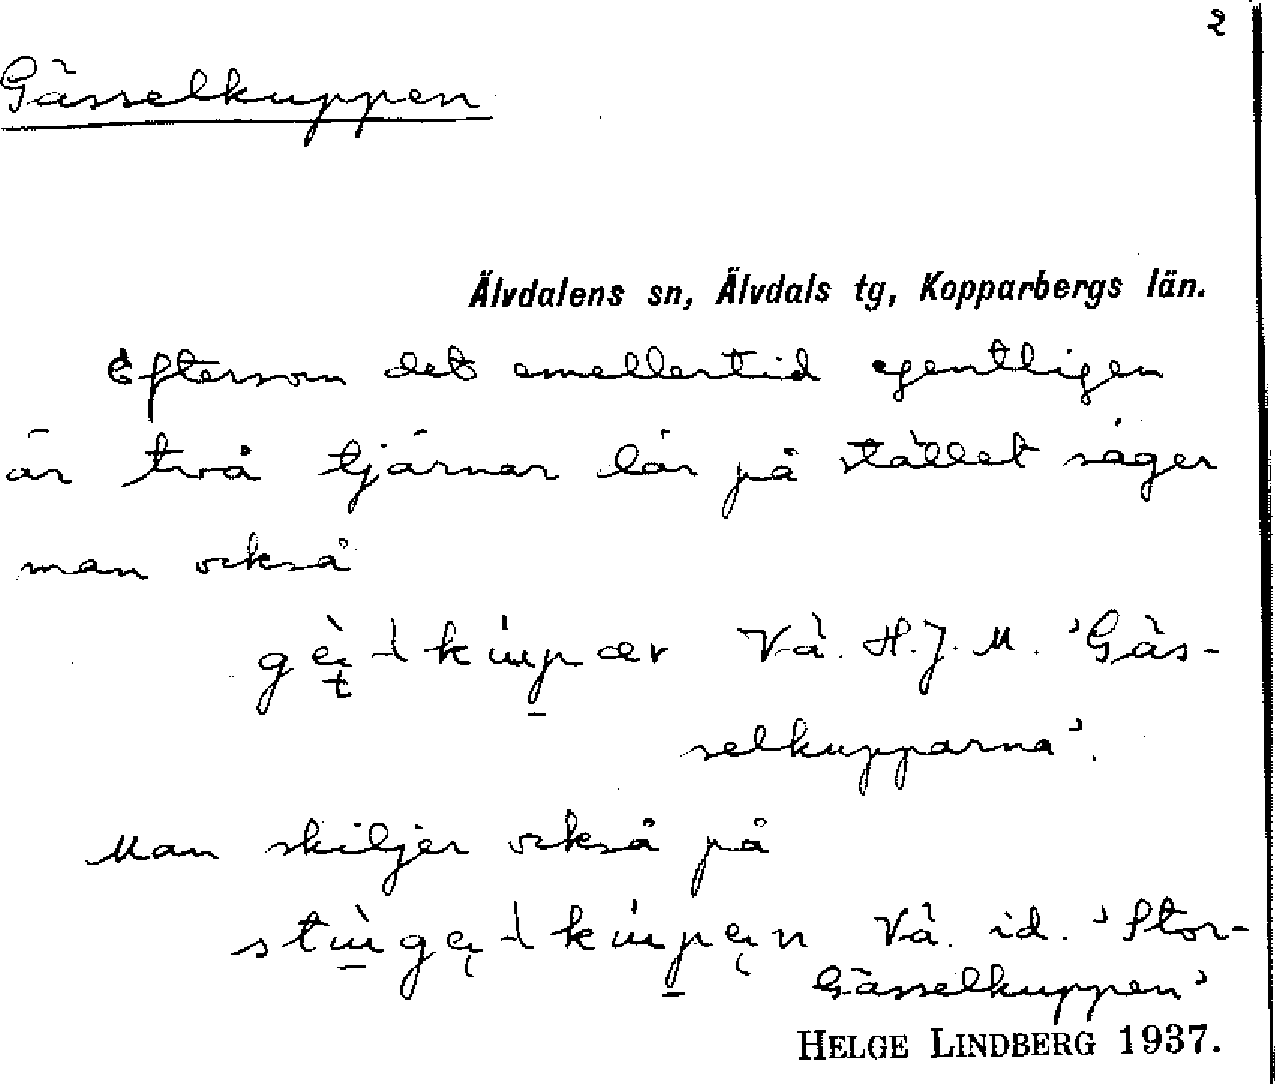 2
Gässelkuppen
Älvdalens sn, Älvdals tg, Kopparbergs län.
Eftersom det emellertid egentligen
är två tjärnar här på stället säger
man också
Vä. H.J.M. 'Gäs-
selkupparna'.
Man skiljer också på
Vä. id. 'Stor-
Gässelkuppen'
HELGE LINDBERG 1937.